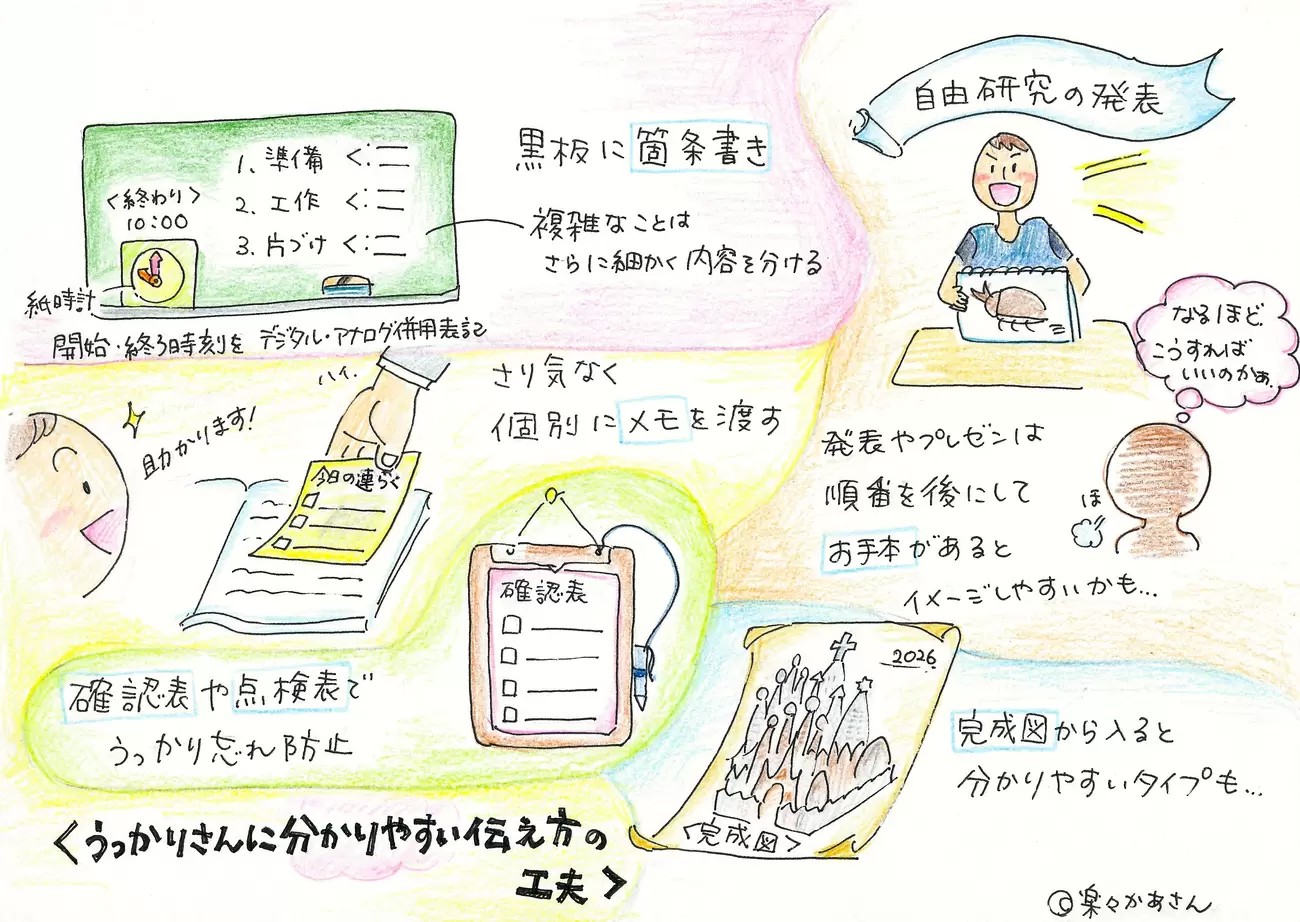 黒板に箇条書き
<終わり>
10:00
1、準備
2、工作
3、片づけ
複雑なことは
さらに細かく内容を分ける
紙時計
開始・終了時刻を デジタル・アナログ併用表記
自由研究の発表
なるほど、
こうすれば
いいのかぁ。
ほ
発表やプレゼンは
順番を後にして
お手本があると
イメージしやすいかも…
さり気なく
個別にメモを渡す
ハイ。
助かります!
今日の連らく
確認表
確認表や点検表で
うっかり忘れ防止
2026
<完成図>
完成図から入ると
分かりやすいタイプも…
<うっかりさんに分かりやすい伝え方の
工夫>
©楽々かあさん